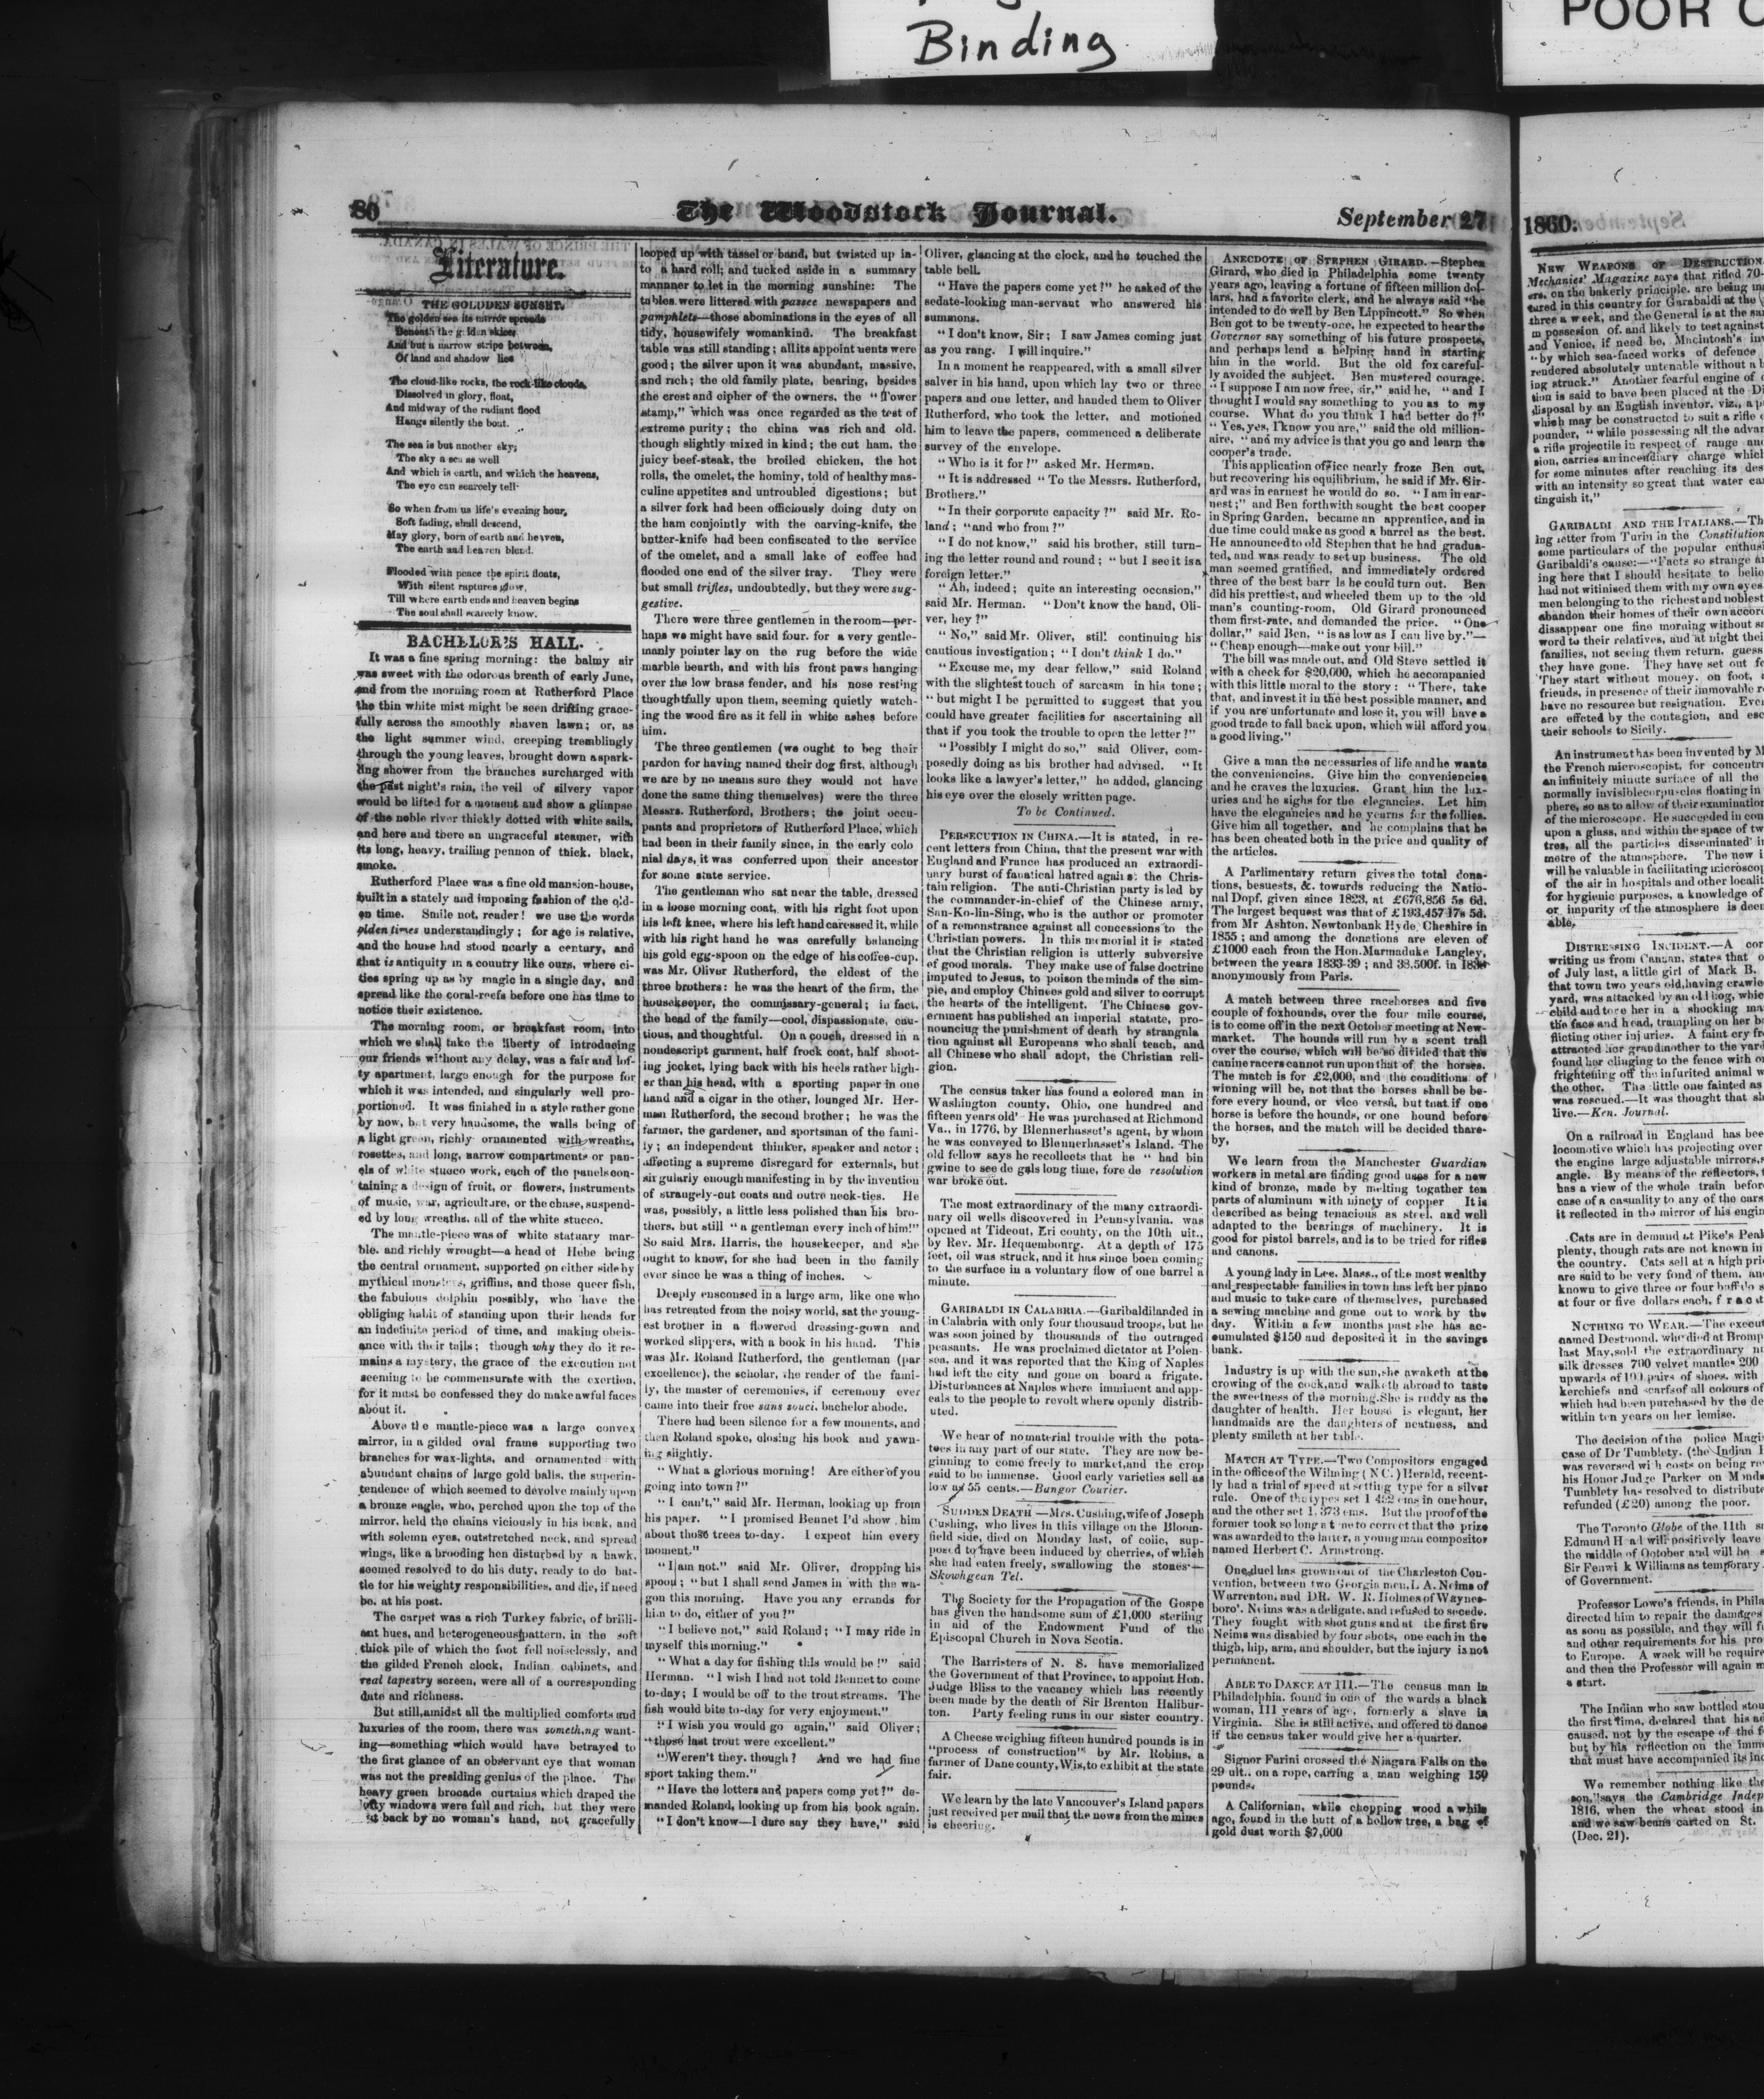 Binding
POOR
80
The Woodstock Journal.
September 27
1860:
Literature.
THE GOLDDEN SUNSET.
The golden sea its mirror spreads
Beneath the golden skies
And but a narrow stripe between,
Of land and shadow lies
The cloud-like rocks, the rock-like clouds,
Dissolved in glory, float,
And midway of the radiant flood
Hangs silently the boat.
The sea is but another sky;
The sky a sea as well
And which is earth, and which the heavens,
The eye can scarcely tell
So when from us life's evening hour,
Soft fading, shall descend,
May glory, born of earth and heaven,
The earth and heaven blend.
Flooded with peace the spirit floats,
With silent raptures glow,
Till where earth ends and heaven begins
The soul shall scarcely know.
BACHELOR'S HALL.
It was a fine spring morning: the balmy air
was sweet with the odorous breath of early June,
and from the morning room at Rutherford Place
the thin white mist might be seen drifting grace-
fully across the smoothly shaven lawn; or, as
the light summer wind, creeping tremblingly
through the young leaves, brought down a spark-
ling shower from the branches surcharged with
the past night's rain, the veil of silvery vapor
would be lifted for a moment and show a glimpse
of the noble river thickly dotted with white sails,
and here and there an ungraceful steamer, with
its long, heavy, trailing pennon of thick, black,
smoke.
Rutherford Place was a fine old mansion-house,
built in a stately and imposing fashion of the old-
en time. Smile not, reader! we use the words
olden times understandingly; for age is relative,
and the house had stood nearly a century, and
that is antiquity in a country like ours, where ci-
ties spring up as by magic in a single day, and
spread like the coral-reefs before one has time to
notice their existence.
The morning room, or breakfast room, into
which we shall take the liberty of introducing
our friends without any delay, was a fair and lof-
ty apartment, large enough for the purpose for
which it was intended, and singularly well pro-
portioned. It was finished in a style rather gone
by now, but very handsome, the walls being of
a light green, richly ornamented with wreaths,
rosettes, and long, narrow compartments or pan-
els of white stucco work, each of the panels con-
taining a design of fruit, or flowers, instruments
of music, war, agriculture, or the chase, suspend-
ed by long wreaths, all of the white stucco.
The mantle-piece was of white statuary mar-
ble, and richly wrought—a head of Hebe being
the central ornament, supported on either side by
mythical monsters, griffins, and those queer fish,
the fabulous dolphin possibly, who have the
obliging habit of standing upon their heads for
an indefinite period of time, and making obeis-
ance with their tails; though why they do it re-
mains a mystery, the grace of the execution not
seeming to be commensurate with the exertion,
for it must be confessed they do make awful faces
about it.
Above the mantle-piece was a large convex
mirror, in a gilded oval frame supporting two
branches for wax-lights, and ornamented with
abundant chains of large gold balls, the superin-
tendence of which seemed to devolve mainly upon
a bronze eagle, who, perched upon the top of the
mirror, held the chains viciously in his beak, and
with solemn eyes, outstretched neck, and spread
wings, like a brooding hen disturbed by a hawk,
seemed resolved to do his duty, ready to do bat-
tle for his weighty responsibilities, and die, if need
be, at his post.
The carpet was a rich Turkey fabric, of brilli-
ant hues, and heterogeneous pattern, in the soft
thick pile of which the foot fell noiselessly, and
the gilded French clock, Indian cabinets, and
real tapestry screen, were all of a corresponding
date and richness.
But still, amidst all the multiplied comforts and
luxuries of the room, there was something want-
ing—something which would have betrayed to
the first glance of an observant eye that woman
was not the presiding genius of the place. The
heavy green brocade curtains which draped the
lofty windows were full and rich, but they were
back by no woman's hand, not gracefully
looped up with tassel or band, but twisted up in-
to a hard roll; and tucked aside in a summary
mannner to let in the morning sunshine: The
tables were littered with passee newspapers and
pamphlets—those abominations in the eyes of all
tidy, housewifely womankind. The breakfast
table was still standing; all its appointments were
good; the silver upon it was abundant, massive,
and rich; the old family plate, bearing, besides
the crest and cipher of the owners, the "Tower
stamp," which was once regarded as the test of
extreme purity; the china was rich and old.
though slightly mixed in kind; the cut ham, the
juicy beef-steak, the broiled chicken, the hot
rolls, the omelet, the hominy, told of healthy mas-
culine appetites and untroubled digestions; but
a silver fork had been officiously doing duty on
the ham conjointly with the carving-knife, the
butter-knife had been confiscated to the service
of the omelet, and a small lake of coffee had
flooded one end of the silver tray. They were
but small trifles, undoubtedly, but they were sug-
gestive.
There were three gentlemen in the room—per-
haps we might have said four. for a very gentle-
manly pointer lay on the rug before the wide
marble hearth, and with his front paws hanging
over the low brass fender, and his nose resting
thoughtfully upon them, seeming quietly watch-
ing the wood fire as it fell in white ashes before
him.
The three gentlemen (we ought to beg their
pardon for having named their dog first, although
we are by no means sure they would not have
done the same thing themselves) were the three
Messrs. Rutherford, Brothers; the joint occu-
pants and proprietors of Rutherford Place, which
had been in their family since, in the early colo
nial days, it was conferred upon their ancestor
for some state service.
The gentleman who sat near the table, dressed
in a loose morning coat, with his right foot upon
his left knee, where his left hand caressed it, while
with his right hand he was carefully balancing
his gold egg-spoon on the edge of his coffee-cup,
was Mr. Oliver Rutherford, the eldest of the
three brothers: he was the heart of the firm, the
housekeeper, the commissary-general; in fact,
the head of the family—cool, dispassionate, cau-
tious, and thoughtful. On a couch, dressed in a
nondescript garment, half frock coat, half shoot-
ing jacket, lying back with his heels rather high-
er than his head, with a sporting paper in one
hand and a cigar in the other, lounged Mr. Her-
man Rutherford, the second brother; he was the
farmer, the gardener, and sportsman of the fami-
ly; an independent thinker, speaker and actor;
affecting a supreme disregard for externals, but
singularly enough manifesting in by the invention
of strangely-cut coats and outre neck-ties. He
was, possibly, a little less polished than his bro-
thers, but still "a gentleman every inch of him!"
So said Mrs. Harris, the housekeeper, and she
ought to know, for she had been in the family
ever since he was a thing of inches.
Deeply ensconsed in a large arm, like one who
has retreated from the noisy world, sat the young-
est brother in a flowered dressing-gown and
worked slippers, with a book in his hand. This
was Mr. Roland Rutherford, the gentleman (par
excellence), the scholar, the reader of the fami-
ly, the master of ceremonies, if ceremony ever
came into their free sans souci, bachelor abode.
There had been silence for a few moments, and
then Roland spoke, closing his book and yawn-
ing slightly.
"What a glorious morning! Are either of you
going into town?"
"I can't," said Mr. Herman, looking up from
his paper. "I promised Bennet I'd show him
about those trees to-day. I expect him every
moment."
"I am not." said Mr. Oliver, dropping his
spoon; "but I shall send James in with the wa-
gon this morning. Have you any errands for
him to do, either of you?"
"I believe not," said Roland; "I may ride in
myself this morning."
"What a day for fishing this would be!" said
Herman. "I wish I had not told Bennet to come
to-day; I would be off to the trout streams. The
fish would bite to-day for very enjoyment."
"I wish you would go again," said Oliver;
"those last trout were excellent."
"Weren't they, though? And we had fine
sport taking them."
"Have the letters and papers come yet?" de-
manded Roland, looking up from his book again.
"I don't know—I dare say they have," said
Oliver, glancing at the clock, and he touched the
table bell.
"Have the papers come yet?" he asked of the
sedate-looking man-servant who answered his
summons.
"I don't know, Sir; I saw James coming just
as you rang. I will inquire."
In a moment he reappeared, with a small silver
salver in his hand, upon which lay two or three
papers and one letter, and handed them to Oliver
Rutherford, who took the letter, and motioned
him to leave the papers, commenced a deliberate
survey of the envelope.
"Who is it for?" asked Mr. Herman.
"It is addressed "To the Messrs. Rutherford,
Brothers."
"In their corporate capacity?" said Mr. Ro-
land; "and who from?"
"I do not know," said his brother, still turn-
ing the letter round and round; "but I see it is a
foreign letter."
"Ah, indeed; quite an interesting occasion,"
said Mr. Herman. "Don't know the hand, Oli-
ver, hey?"
"No," said Mr. Oliver, still continuing his
cautious investigation; "I don't think I do."
"Excuse me, my dear fellow," said Roland
with the slightest touch of sarcasm in his tone;
"but might I be permitted to suggest that you
could have greater facilities for ascertaining all
that if you took the trouble to open the letter?"
"Possibly I might do so," said Oliver, com-
posedly doing as his brother had advised. "It
looks like a lawyer's letter," he added, glancing
his eye over the closely written page.
To be Continued.
PERSECUTION IN CHINA.—It is stated, in re-
cent letters from China, that the present war with
England and France has produced an extraordi-
nary burst of fanatical hatred against the Chris-
tain religion. The anti-Christian party is led by
the commander-in-chief of the Chinese army,
San-Ko-lin-Sing, who is the author or promoter
of a remonstrance against all concessions to the
Christian powers. In this memorial it is stated
that the Christian religion is utterly subversive
of good morals. They make use of false doctrine
imputed to Jesus, to poison the minds of the sim-
ple, and employ Chinese gold and silver to corrupt
the hearts of the intelligent. The Chinese gov-
ernment has published an imperial statute, pro-
nouncing the punishment of death by strangula
tion against all Europeans who shall teach, and
all Chinese who shall adopt, the Christian reli-
gion.
The census taker has found a colored man in
Washington county, Ohio, one hundred and
fifteen years old' He was purchased at Richmond
Va., in 1776, by Blennerhasset's agent, by whom
he was conveyed to Blennerhasset's Island. The
old fellow says he recollects that he "had bin
gwine to see de gals long time, fore de resolution
war broke out.
The most extraordinary of the many extraordi-
nary oil wells discovered in Pennsylvania, was
opened at Tideout, Eri county, on the 10th ult.,
by Rev. Mr. Hequembourg. At a depth of 175
feet, oil was struck, and it has since been coming
to the surface in a voluntary flow of one barrel a
minute.
GARIBALDI IN CALABRIA.—Garibaldi landed in
in Calabria with only four thousand troops, but he
was soon joined by thousands of the outraged
peasants. He was proclaimed dictator at Polen-
sea, and it was reported that the King of Naples
had left the city and gone on board a frigate.
Disturbances at Naples where imminent and app-
eals to the people to revolt where openly distrib-
uted.
We hear of no material trouble with the pota-
toes in any part of our state. They are now be-
ginning to come freely to market, and the crop
said to be immense. Good early varieties sell as
low as 55 cents.—Bangor Courier.
SUDDEN DEATH—Mrs. Cushing, wife of Joseph
Cushing, who lives in this village on the Bloom-
field side, died on Monday last, of colic, sup-
posed to have been induced by cherries, of which
she had eaten freely, swallowing the stones—
Skowhgean Tel.
The Society for the Propagation of the Gospe
has given the handsome sum of £1,000 sterling
in aid of the Endowment Fund of the
Episcopal Church in Nova Scotia.
The Barristers of N. S. have memorialized
the Government of that Province, to appoint Hon.
Judge Bliss to the vacancy which has recently
been made by the death of Sir Brenton Halibur-
ton. Party feeling runs in our sister country.
A Cheese weighing fifteen hundred pounds is in
"process of construction" by Mr. Robins, a
farmer of Dane county, Wis, to exhibit at the state
fair.
We learn by the late Vancouver's Island papers
just received per mail that the news from the mines
is cheering.
ANECDOTE OF STEPHEN GIRARD.—Stephen
Girard, who died in Philadelphia some twenty
years ago, leaving a fortune of fifteen million dol-
lars, had a favorite clerk, and he always said "he
intended to do well by Ben Lippincott." So when
Ben got to be twenty-one, he expected to hear the
Governor say something of his future prospects,
and perhaps lend a helping hand in starting
him in the world. But the old fox careful-
ly avoided the subject. Ben mustered courage.
"I suppose I am now free, sir," said he, "and I
thought I would say something to you as to my
course. What do you think I had better do?"
"Yes, yes, I know you are," said the old million-
aire, "and my advice is that you go and learn the
cooper's trade.
This application office nearly froze Ben out,
but recovering his equilibrium, he said if Mr. Gir-
ard was in earnest he would do so. "I am in ear-
nest;" and Ben forthwith sought the best cooper
in Spring Garden, became an apprentice, and in
due time could make as good a barrel as the best.
He announced to old Stephen that he had gradua-
ted, and was ready to set up business. The old
man seemed gratified, and immediately ordered
three of the best barr ls he could turn out. Ben
did his prettiest, and wheeled them up to the old
man's counting-room, Old Girard pronounced
them first-rate, and demanded the price. "One
dollar," said Ben, "is as low as I can live by."—
"Cheap enough—make out your bill."
The bill was made out, and Old Steve settled it
with a check for $20,000, which he accompanied
with this little moral to the story: "There, take
that, and invest it in the best possible manner, and
if you are unfortunate and lose it, you will have a
good trade to fall back upon, which will afford you
a good living."
Give a man the necessaries of life and he wants
the conveniencies. Give him the conveniencies
and he craves the luxuries. Grant him the lux-
uries and he sighs for the elegancies. Let him
have the elegancies and he yearns for the follies.
Give him all together, and he complains that he
has been cheated both in the price and quality of
the articles.
A Parlimentary return gives the total dona-
tions, besuests, &. towards reducing the Natio-
nal Dopf, given since 1823, at £676,856 5s 6d.
The largest bequest was that of £193,457 17s 5d.
from Mr Ashton, Newtonbank Hyde, Cheshire in
1855; and among the donations are eleven of
£1000 each from the Hon. Marmaduke Langley,
between the years 1833-39; and 38,500f. in
anonymously from Paris.
A match between three racehorses and five
couple of foxhounds, over the four mile course,
is to come off in the next October meeting at New-
market. The hounds will run by a scent trail
over the course, which will be so divided that the
canine racers cannot run upon that of the horses.
The match is for £2,000, and the conditions of
winning will be, not that the horses shall be be-
fore every hound, or vice versâ, but that if one
horse is before the hounds, or one hound before
the horses, and the match will be decided thare-
by,
We learn from the Manchester Guardian
workers in metal are finding good uses for a new
kind of bronze, made by melting togather ten
parts of aluminum with ninety of copper It is
described as being tenacious as steel, and well
adapted to the bearings of machinery. It is
good for pistol barrels, and is to be tried for rifles
and canons.
A young lady in Lee, Mass., of the most wealthy
and respectable families in town has left her piano
and music to take care of themselves, purchased
a sewing machine and gone out to work by the
day. Within a few months past she has ac-
cumulated $150 and deposited it in the savings
bank.
Industry is up with the sun, she awaketh at the
crowing of the cock, and walketh abroad to taste
the sweetness of the morning. She is ruddy as the
daughter of health. Her house is elegant, her
handmaids are the daughters of neatness, and
plenty smileth at her table.
MATCH AT TYPE.—Two Compositors engaged
in the office of the Wilming (NC.) Herald, recent-
ly had a trial of speed at setting type for a silver
rule. One of the types set 1 4 2 ems in one hour,
and the other set 1,373 ems. But the proof of the
former took so long a t me to correct that the prize
was awarded to the latter, a young man compositor
named Herbert C. Armstrong.
One duel has grown out of the Charleston Con-
vention, between two Georgia men, I. A. Neims of
Warrenton, and DR. W. R. Holmes of Waynes-
boro'. Neims was a deligate, and refused to secede.
They fought with shot guns and at the first fire
Neims was disabled by four shots, one each in the
thigh, hip, arm, and shoulder, but the injury is not
permanent.
ABLE TO DANCE AT 111.—The census man in
Philadelphia, found in one of the wards a black
woman, 111 years of age, formerly a slave in
Virginia. She is still active, and offered to dance
if the census taker would give her a quarter.
Signor Farini crossed the Niagara Falls on the
29 ult., on a rope, carring a man weighing 150
pounds.
A Californian, while chopping wood a while
ago, found in the butt of a hollow tree, a bag of
gold dust worth $7,000
NEW WEAPONS OF DESTRUCTION
Mechanics' Magazine says that rifled 70-
ers, on the bakerly principle, are being m
tured in this country for Garabaldi at the
three a week, and the General is at the sa
in possesion of, and likely to test against
and Venice, if need be, Macintosh's in
"by which sea-faced works of defence
rendered absolutely untenable without a
ing struck." Another fearful engine of
tion is said to have been placed at the Di
disposal by an English inventor, viz., a p
which may be constructed to suit a rifle
pounder, "while possessing all the advan
a rifle projectile in respect of range an
sion, carries an incendiary charge which
for some minutes after reaching its des
with an intensity so great that water ca
tinguish it,"
GARIBALDI AND THE ITALIANS.—Th
ing letter from Turin in the Constitution
some particulars of the popular enthusi
Garibaldi's cause:—"Facts so strange a
ing here that I should hesitate to belie
had not witinised them with my own eyes
men belonging to the richest and noblest
abandon their homes of their own accor
dissappear one fine morning without s
word to their relatives, and at night thei
families, not seeing them return, guess
they have gone. They have set out fo
They start without money, on foot,
friends, in presence of their immovable r
have no resource but resignation. Eve
are effeted by the contagion, and esc
their schools to Sicily.
An instrument has been invented by M
the French microscopist, for concentr
an infinitely minute surface of all the
normally invisible corpuscles floating in
phere, so as to allow of their examination
of the microscope. He succeeded in con
upon a glass, and within the space of tw
tres, all the particles disseminated i
metre of the atmosphere. The new i
will be valuable in facilitating microscop
of the air in hospitals and other localit
for hygienic purposes, a knowledge of
or impurity of the atmosphere is deem
able,
DISTRESSING INCIDENT.—A cor
writing us from Canaan, states that o
of July last, a little girl of Mark B.
that town two years old, having crawle
yard, was attacked by an old hog, whic
child and tore her in a shocking ma
the face and head, trampling on her b
flicting other injuries. A faint cry fr
attracted her grandmother to the yard
found her clinging to the fence with o
frightening off the infurited animal w
the other. The little one fainted as
was rescued.—It was thought that sh
live.—Ken. Journal.
On a railroad in England has bee
locomotive which has projecting over
the engine large adjustable mirrors,
angle. By means of the reflectors,
has a view of the whole train before
case of a casuality to any of the cars
it reflected in the mirror of his engin
Cats are in demand at Pike's Peak
plenty, though rats are not known in
the country. Cats sell at a high pri
are said to be very fond of them, an
known to give three or four buffalo s
at four or five dollars each, f r a c a t
NOTHING TO WEAR.—The execut
named Destmond, who died at Bromp
last May, sold the extraordinary nu
silk dresses 700 velvet mantles 200
upwards of 100 pairs of shoes, with
kerchiefs and scarfs of all colours of
which had been purchased by the de
within ten years on her lemise.
The decision of the police Magi
case of Dr Tumblety, (the Indian H
was reversed with costs on being re
his Honor Judge Parker on Monda
Tumblety has resolved to distribute
refunded (£20) among the poor.
The Toronto Globe of the 11th s
Edmund H ad will positively leave
the middle of October and will be s
Sir Fenwi k Williams as temporary
of Government.
Professor Lowe's friends, in Phila
directed him to repair the damages
as soon as possible, and they will fu
and other requirements for his pro
to Europe. A week will be require
and then the Professor will again m
a start.
The Indian who saw bottled stou
the first time, declared that his ad
caused, not by the escape of the f
but by his reflection on the imm
that must have accompanied its in
We remember nothing like the
son," says the Cambridge Indep
1816, when the wheat stood in
and we saw beans carted on St.
(Dec. 21).